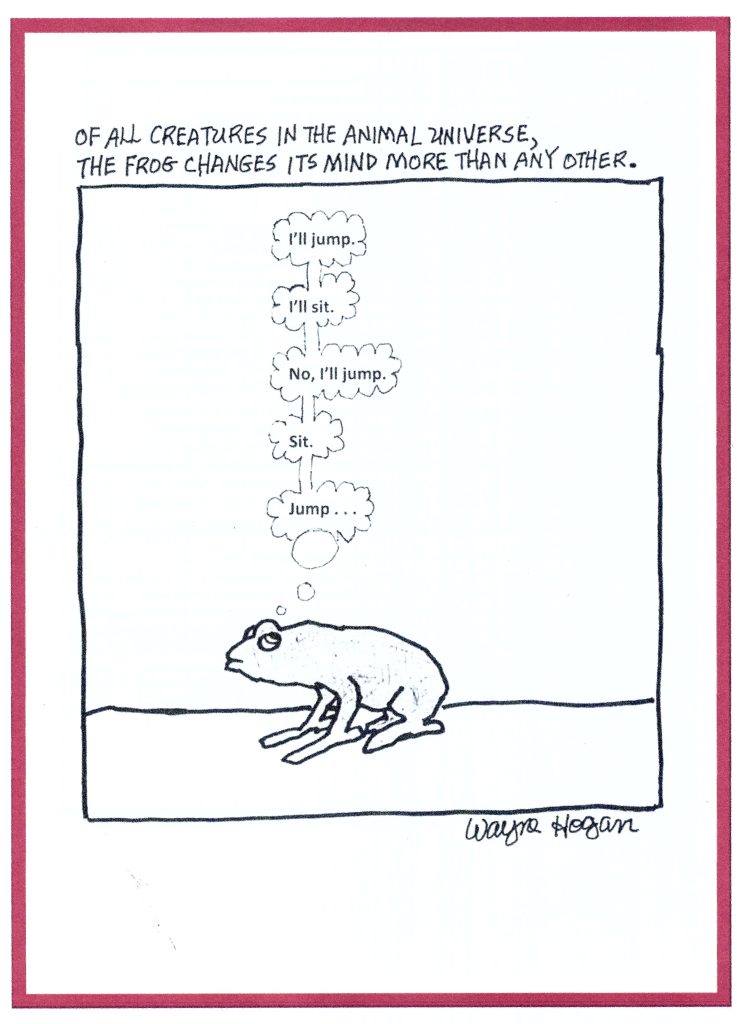 OF ALL CREATURES IN THE ANIMAL UNIVERSE,
THE FROG CHANGES ITS MIND MORE THAN ANY OTHER.
I'll jump.
I'll sit.
No, I'll jump.
Sit.
Jump . . .
Wayne Hogan